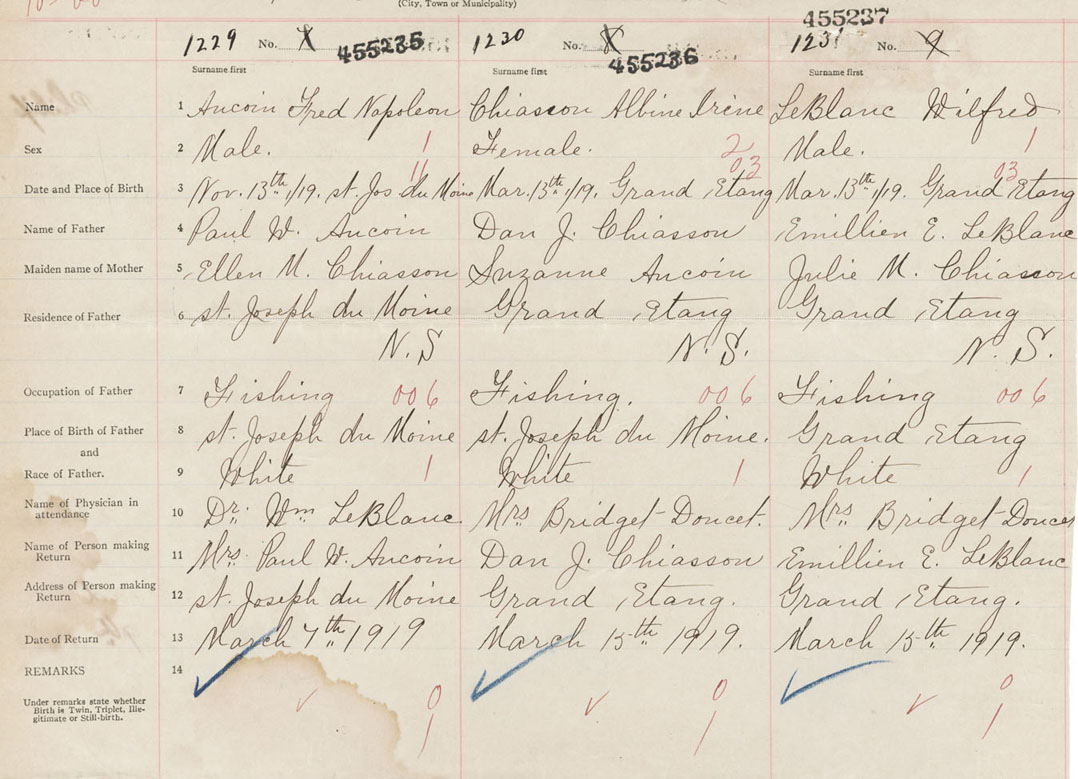 (City, Town or Municipality)
1229 No. 455235 1230 No. 8 455236 455237 1231 No. 9
Surname first Surname first Surname first
Name 1 Aucoin Fred Napoleon Chiasson Albine Irene LeBlanc Wilfred
Sex 2 Male. 1 Female. 2 Male. 1
11 03 03
Date and Place of Birth 3 Nov. 13th 1/19. st. Jos du Moine Mar. 13th 1/19. Grand Etang Mar. 13th 1/19. Grand Etang
Name of Father 4 Paul W. Aucoin Dan J. Chiasson Emillien E. LeBlanc
Maiden name of Mother 5 Ellen M. Chiasson Suzanne Aucoin Julie M. Chiasson
Residence of Father 6 st. Joseph du Moine Grand Etang Grand Etang
N. S N. S. N. S.
Occupation of Father 7 Fishing 006 Fishing. 006 Fishing 006
Place of Birth of Father 8 st. Joseph du Moine st. Joseph du Moine. Grand Etang
and
Race of Father. 9 White 1 White 1 White 1
Name of Physician in
attendance 10 Dr. Wm LeBlanc. Mrs Bridget Doucet. Mrs Bridget Doucet
Name of Person making
Return 11 Mrs. Paul W. Aucoin Dan J. Chiasson Emillien E. LeBlanc
Address of Person making
Return 12 st. Joseph du Moine Grand Etang. Grand Etang.
Date of Return 13 March 7th 1919 March 15th 1919. March 15th 1919.
REMARKS 14
Under remarks state whether
Birth is Twin, Triplet, Ille-
gitimate or Still-birth.
0 0 0
1 1 1